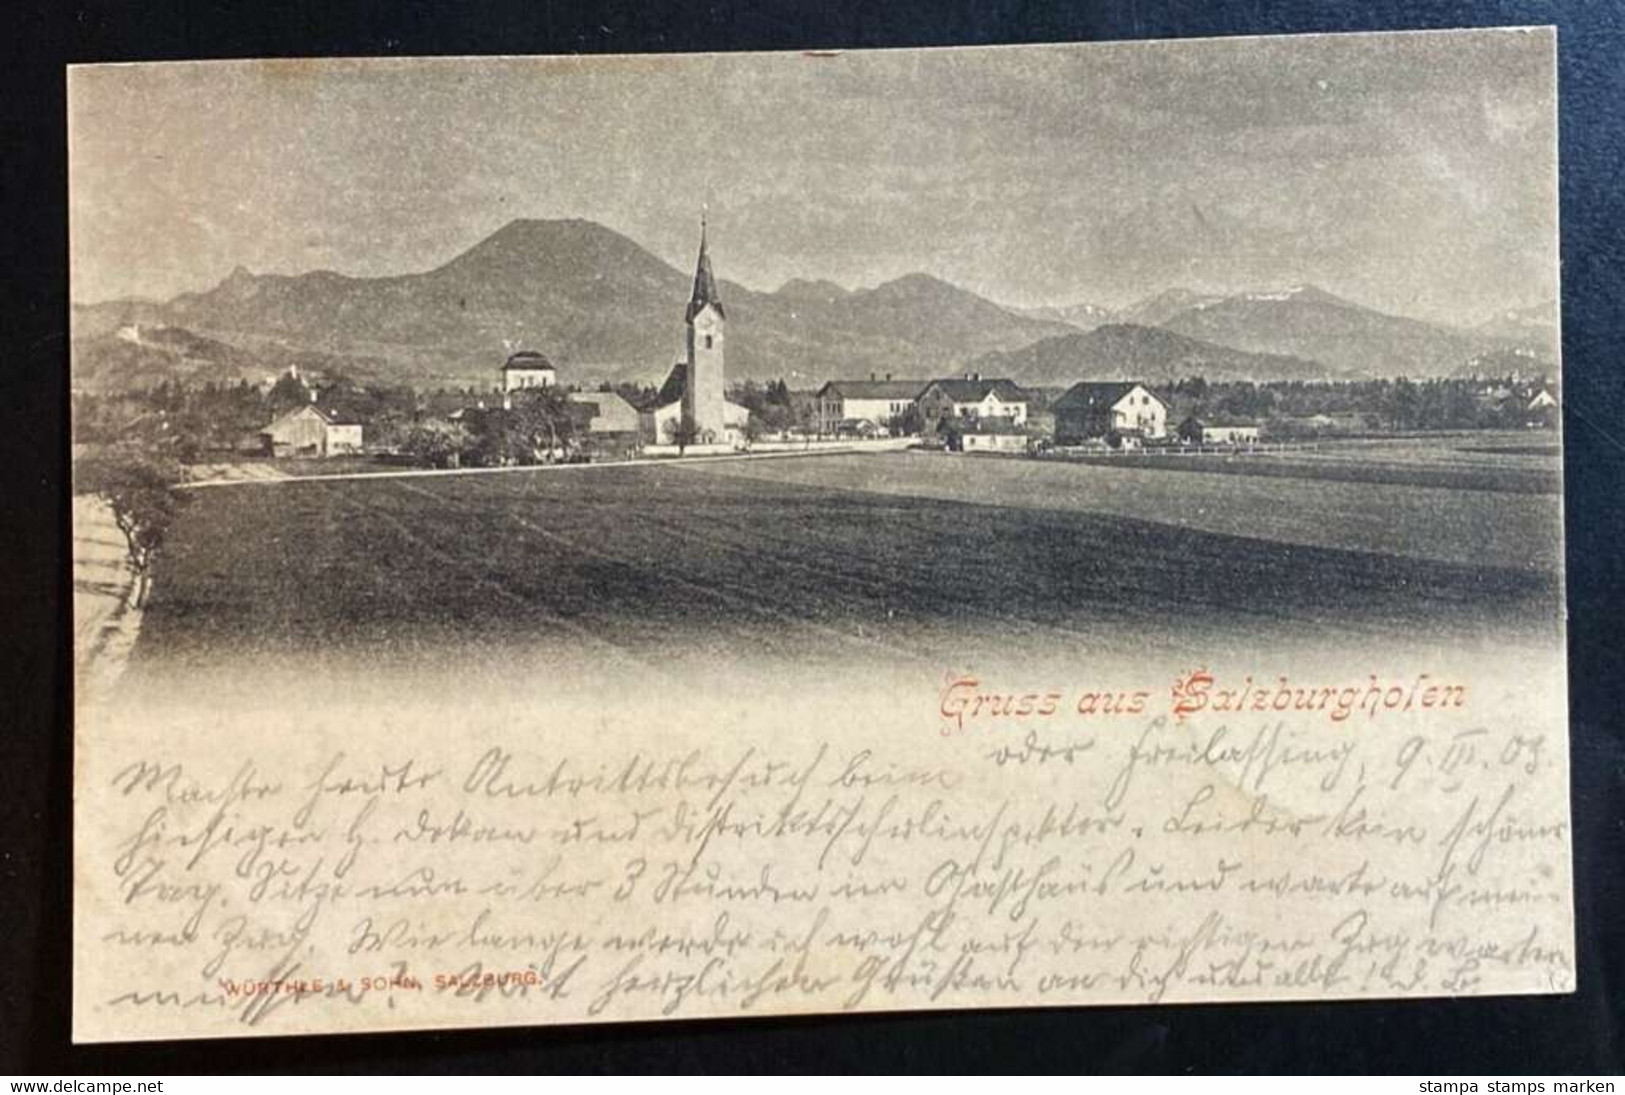 Gruss aus Salzburghofen
oder Freilassing, 9. III. 03.
Machte heute Antrittsbesuch beim
hiesigen H. Dekan und Distriktsschulinspektor. Leider kein schöner
Tag. Sitze nun über 3 Stunden im Gasthaus und warte auf mei-
nen Zug. Wie lange werde ich wohl auf den richtigen Zug warten
müssen? Mit herzlichen Grüßen an dich u. alle!
WÜRTHLE & SOHN, SALZBURG.
www.delcampe.net
stampa stamps marken